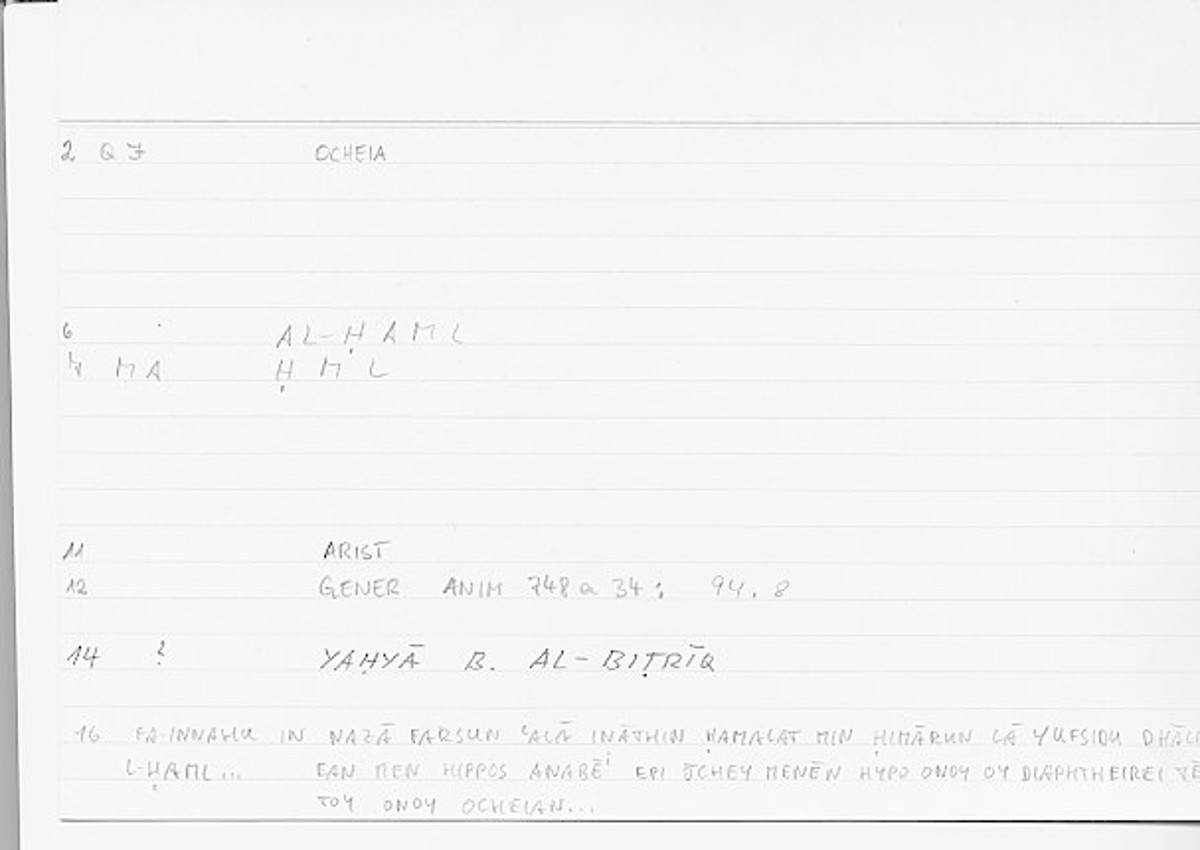 2 QF OCHEIA
6 . AL-ḤAML
MA ḤML
11 ARIST
12 GENER ANIM 748a34: 94.8
14 ? YAḤYĀ B. AL-BIṬRĪQ
16 FA-INNAHU IN NAZĀ FARSUN ʿALĀ INĀTHIN ḤAMALAT MIN ḤIMĀRUN LĀ YUFSIDU
L-ḤAML... EAN MEN HIPPOS ANABĒⁱ EPI ŌCHEYMENĒN HYPO ONOY OY DIAPHTHEIREI
TOY ONOY OCHEIAN...